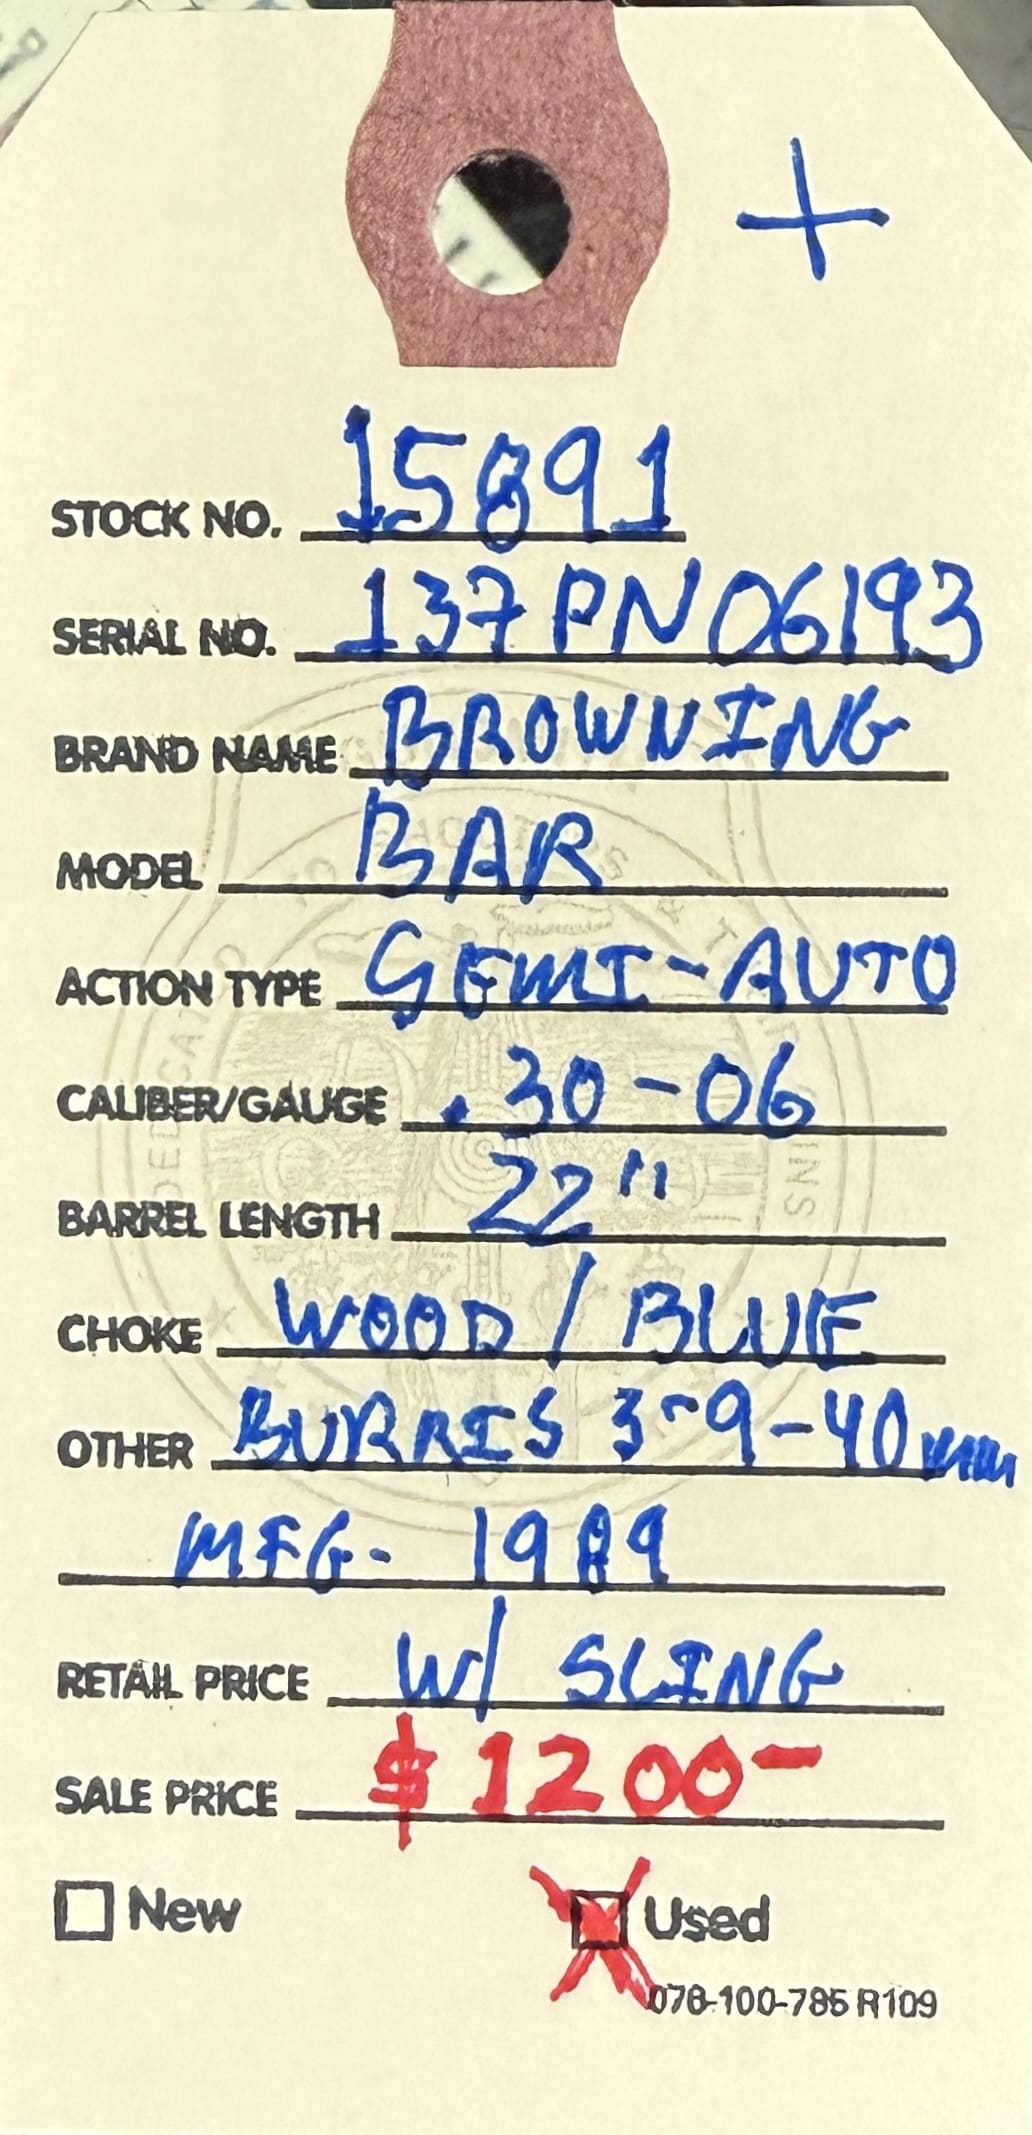 +
STOCK NO. 15891
SERIAL NO. 137PN06193
BRAND NAME BROWNING
MODEL BAR
ACTION TYPE SEMI-AUTO
CALIBER/GAUGE .30-06
BARREL LENGTH 22"
CHOKE WOOD / BLUE
OTHER BURRIS 3-9-40mm
MFG- 1989
RETAIL PRICE W/ SLING
SALE PRICE $1200-
New Used
078-100-785 R109